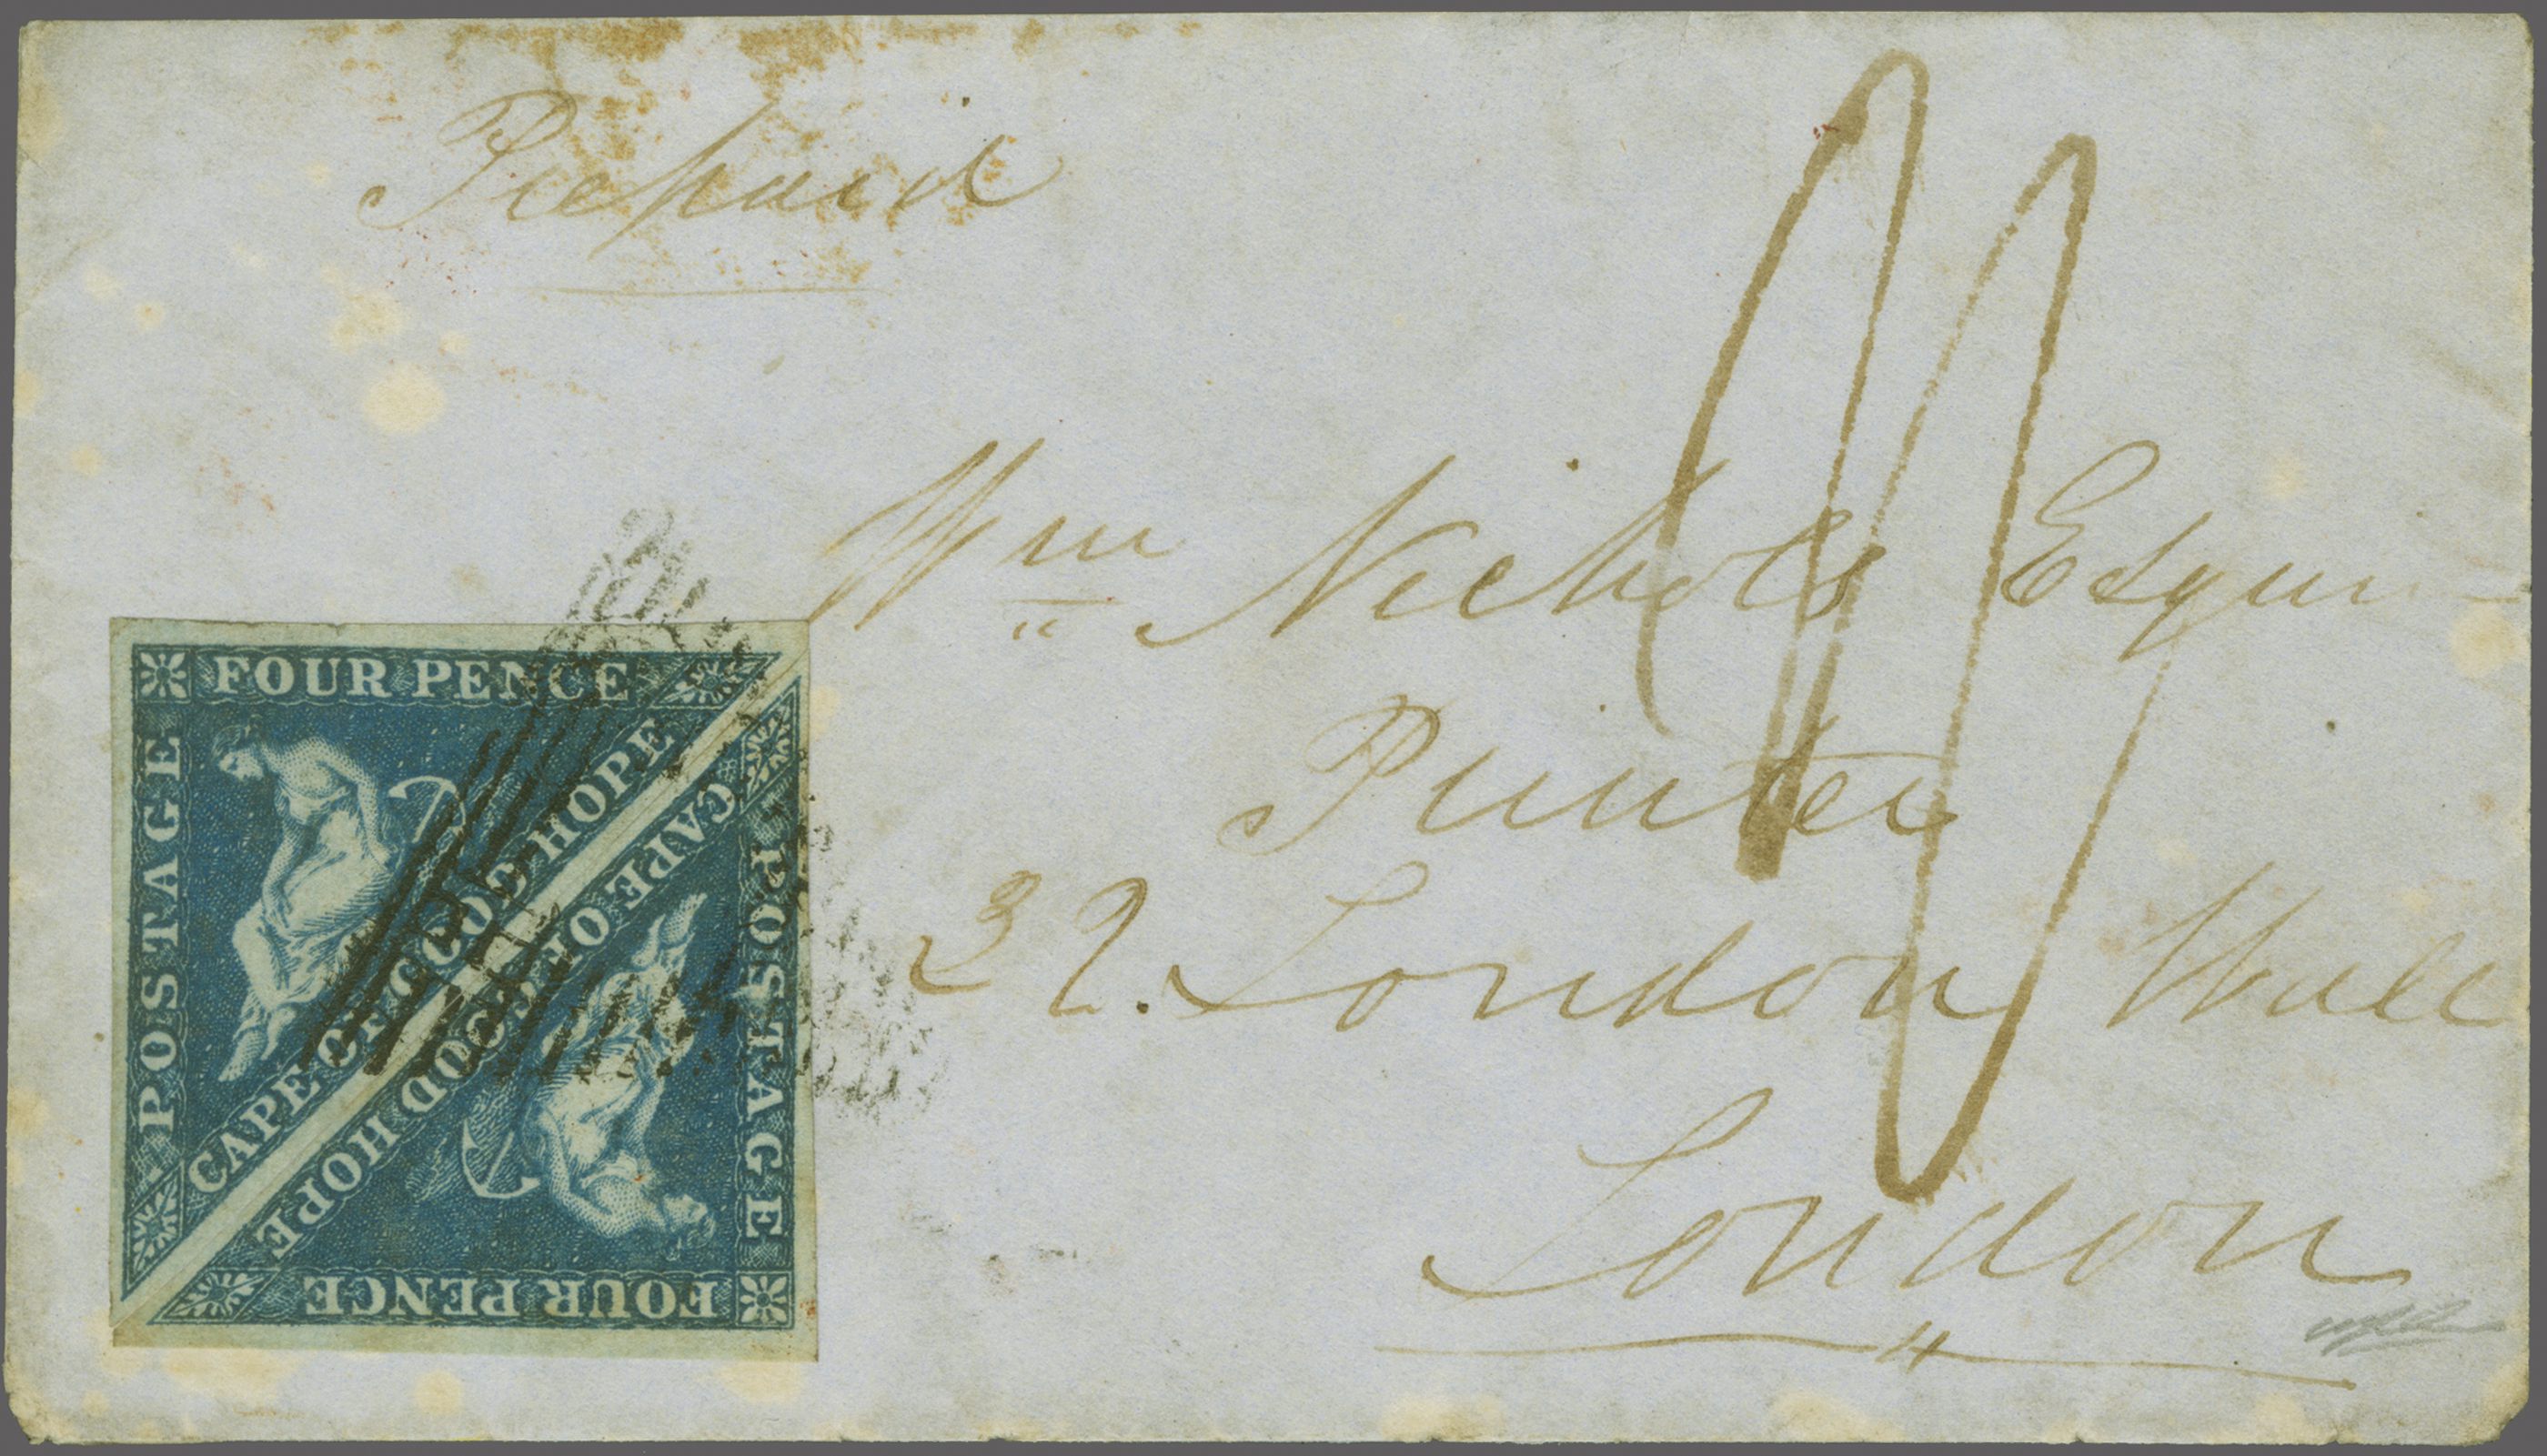 Prepaid
Wm Nichols Esquire
Printer
32. London Wall
London
FOUR PENCE
POSTAGE
CAPE OF GOOD HOPE
CAPE OF GOOD HOPE
POSTAGE
FOUR PENCE